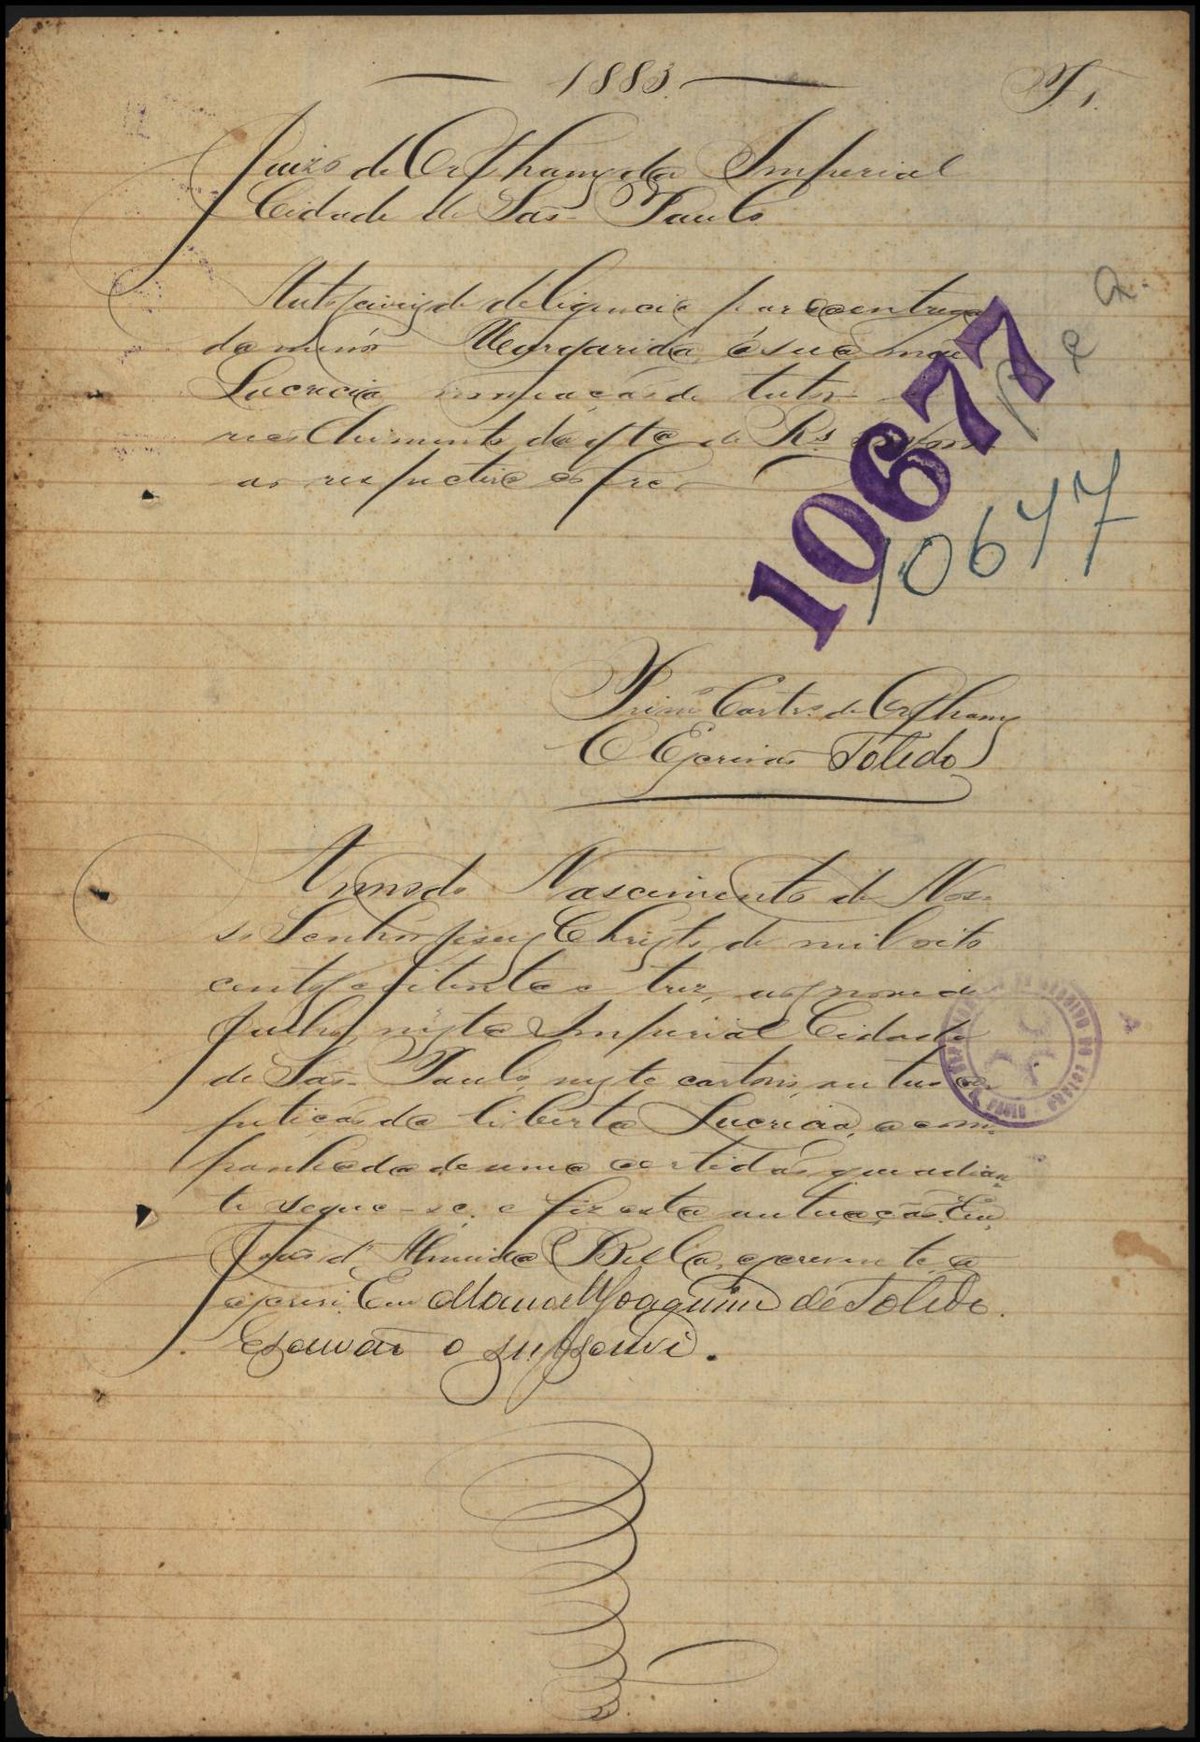 1883.
F. 1.
Juizo de Orphans da Imperial
Cidade de São Paulo
Autos civeis de deligencia para a entrega
da menor Margarida, á sua mãe
Lucrecia, nomeação de tutor e
recolhimento da qta de Rs.
ao respectivo cofre.
10677
10677
Primo Carto de Orphans
O Escrivão Toledo
Anno do Nascimento de Nos-
so Senhor Jesus Christo de mil oito
centos e oitenta e trez, aos nove de
Julho, nesta Imperial Cidade
de São Paulo, neste cartorio, autuo a
petição da liberta Lucrecia, acom-
panhada de uma certidão, que adian-
te segue-se, e fiz esta autuação. Eu,
d'Almeida Bella, escrevente, a
escrevi. Eu Manoel Joaquim de Toledo.
Escrivão o subscrevi.